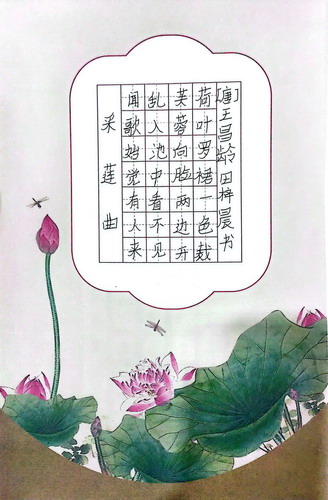 [唐]王昌龄 田梓晨书
荷叶罗裙一色裁
芙蓉向脸两边开
乱入池中看不见
闻歌始觉有人来
采莲曲